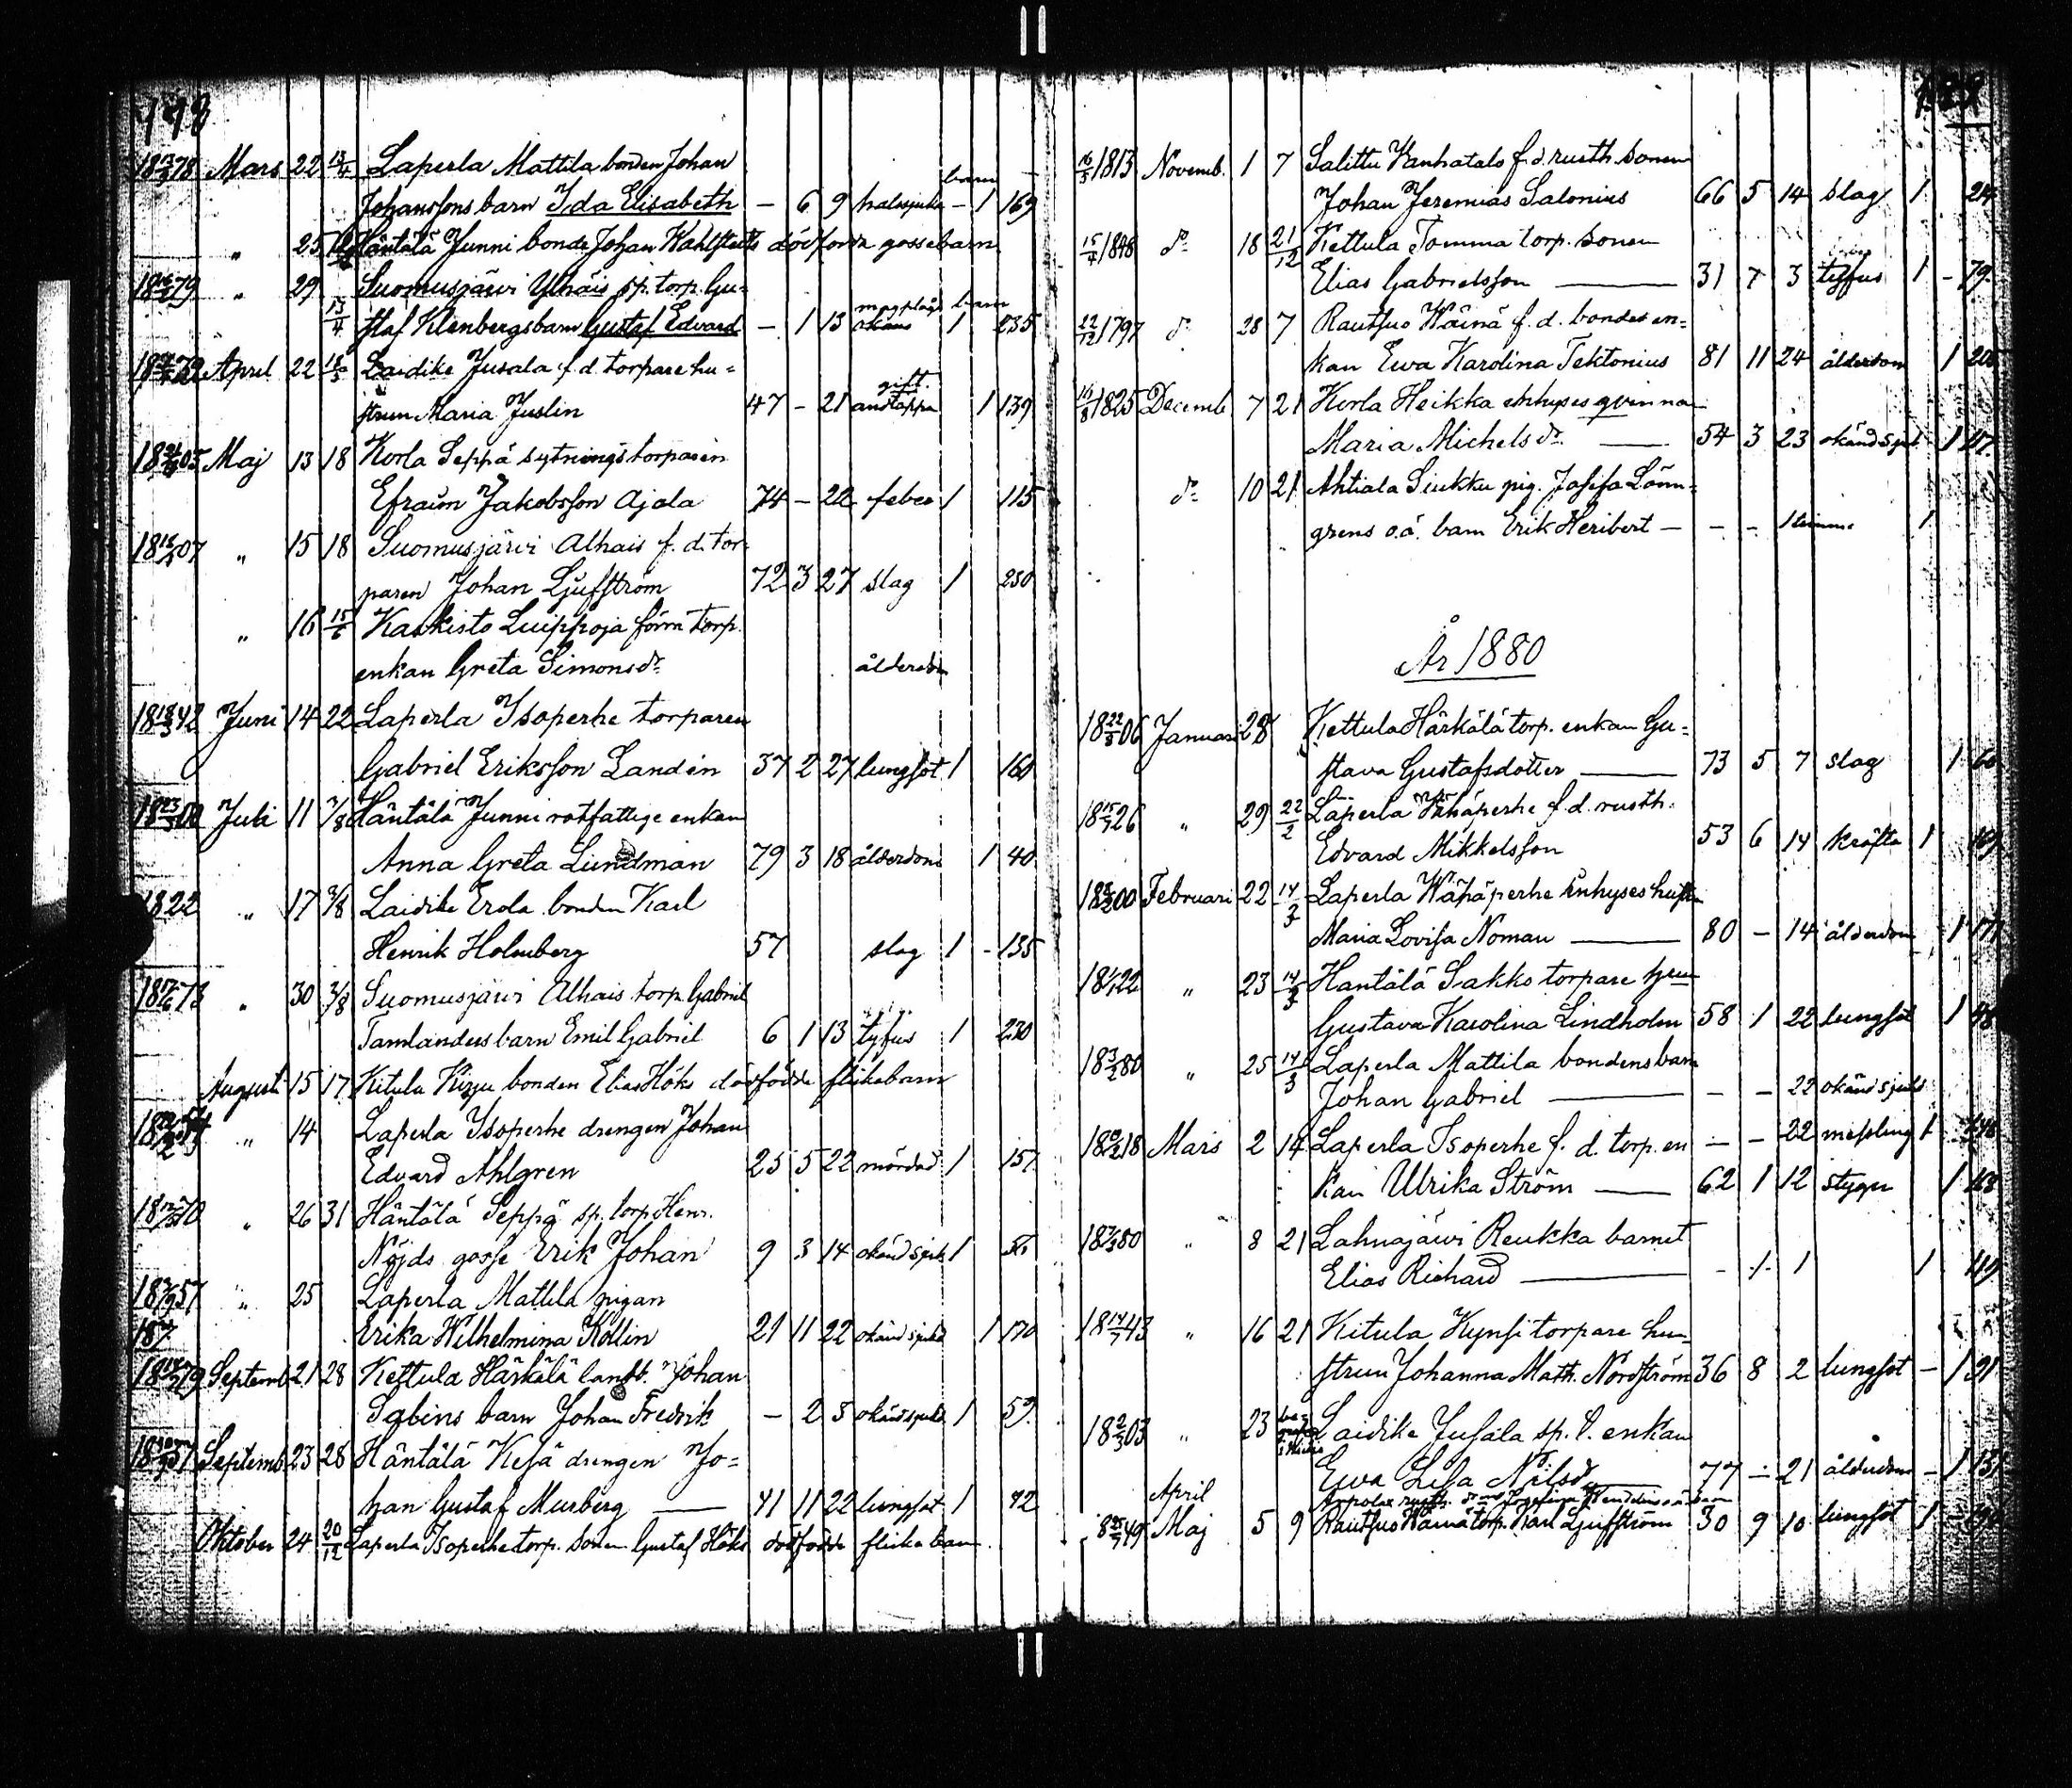 198
18 13/9 78 Mars 22 13/4 Laperla Mattila bonden Johan
Johanssons barn Ida Elisabeth – 6 9 halssjuka – 1 169
" 25 Häntälä Junni bonde Johan Wahlstedts dödfödda gossebarn
18 16/2 79 " 29 Suomusjärwi Ylhäis sp. torp. Gu=
13/4 staf Klenbergs barn Gustaf Edvard – 1 13 okänd barn 1 235
April 22 18/5 Laidike Jusala f. d. torpare hu=
strun Maria Juslin 47 – 21 andtäppa gift. 1 139
05 Maj 13 18 Korla Seppä sytningstorparen
Efraim Jakobsson Ajala 74 – 22 feber 1 115
18 18/1 07 " 15 18 Suomusjärwi Alhais f. d. tor=
paren Johan Ljufström 72 3 27 slag 1 250
" 16 15/6 Kaskisto Luippoja förra torp.
enkan Greta Simonsdr ålderdom
18 18/3 42 Juni 14 22 Laperla Isoperhe torparen
Gabriel Eriksson Landén 37 2 27 lungsot 1 160
18 23/3 00 Juli 11 7/8 Häntälä Junni rotfattige enkan
Anna Greta Lundman 79 3 18 ålderdom 1 40
1822 " 17 3/8 Laidike Erola bonden Karl
Henrik Holmberg 57 slag 1 – 135
18 17/6 73 " 30 3/8 Suomusjärwi Alhais torp. Gabriel
Tamlanders barn Emil Gabriel 6 1 13 tyfus 1 230
Augusti 15 17 Kitula Kizu bonden Elias Höks dödfödda flickebarn
" 14 Laperla Isoperhe drengen Johan
Edvard Ahlgren 25 5 22 mördad 1 157
70 " 26 31 Häntälä Seppä sp. torp. Henr.
Nöjds gosse Erik Johan 9 3 14 okänd sjuk. 1
18 3/9 57 " 25 Laperla Mattila pigan
187 Erika Wilhelmina Kollin 21 11 22 okänd sjukd 1 170
79 Septemb. 21 28 Kettula Härkälä landb. Johan
Sabins barn Johan Fredrik – 2 5 okänd sjukd 1 59
37 Septemb. 23 28 Häntälä Kesä drengen Jo=
han Gustaf Murberg — 41 11 22 lungsot 1 42
Oktober 24 20/12 Laperla Isoperhe torp. sonen Gustaf Höks dödfödde flickebarn
16/5 1813 Novemb. 1 7 Salittu Wanhatalo f. d. rusth. sonen
Johan Jeremias Salonius 66 5 14 slag 1 214
15/4 1848 do 18 21/12 Kettula Tomma torp. sonen
Elias Gabrielsson — 31 7 3 tyffus 1 – 79.
22/12 1797 do 28 7 Rautsuo Wäinä f. d. bondes en=
kan Ewa Karolina Tektonius 81 11 24 ålderdom 1 205
16/8 1825 Decemb. 7 21 Korla Heikka inhyses qvinna
Maria Michelsdr — 54 3 23 okänd sjuk. 1 117.
do 10 21 Ahtiala Siukku pig. Josefa Lönn=
grens o.ä. barn Erik Heribert — – – 1 timme 1
År 1880
18 22/8 06 Januari 28 Kettula Härkälä torp. enkan Gu=
stava Gustafsdotter — 73 5 7 slag 1 60
18 15/7 26 " 29 22/2 Laperla Wähäperhe f. d. rusth.
Edvard Mikkelsson 53 6 14 kräfta 1 169
00 Februari 22 14/3 Laperla Wähäperhe inhyses hustr.
Maria Lovisa Noman — 80 – 14 ålderdom 1 171
18 1/1 22 " 23 14/3 Häntälä Sakko torpare hu
Gustava Karolina Lindholm 58 1 22 lungsot 1 48
18 3/2 80 " 25 14/3 Laperla Mattila bondens barn
Johan Gabriel — – – 22 okänd sjukd
18 Mars 2 14 Laperla Isoperhe f. d. torp. en – – 22 messling 1
kan Ulrika Ström — 62 1 12 stygn 1 163
18 7/3 80 " 8 21 Lahnajärwi Reukka barnet
Elias Richard — – – 1 1 119
18 14/7 43 " 16 21 Kitula Kynsi torpare hu=
strun Johanna Math. Nordström 36 8 2 lungsot – 1 91
18 2/3 03 " 23 Laidike Jusala sp. t. enkan
Ewa Lisa Nilsdr — 77 – 21 ålderdom – 1 131
April
49 Maj 5 9 Rautsuo Wäinä torp. Karl Ljufström 30 9 10 lungsot 1